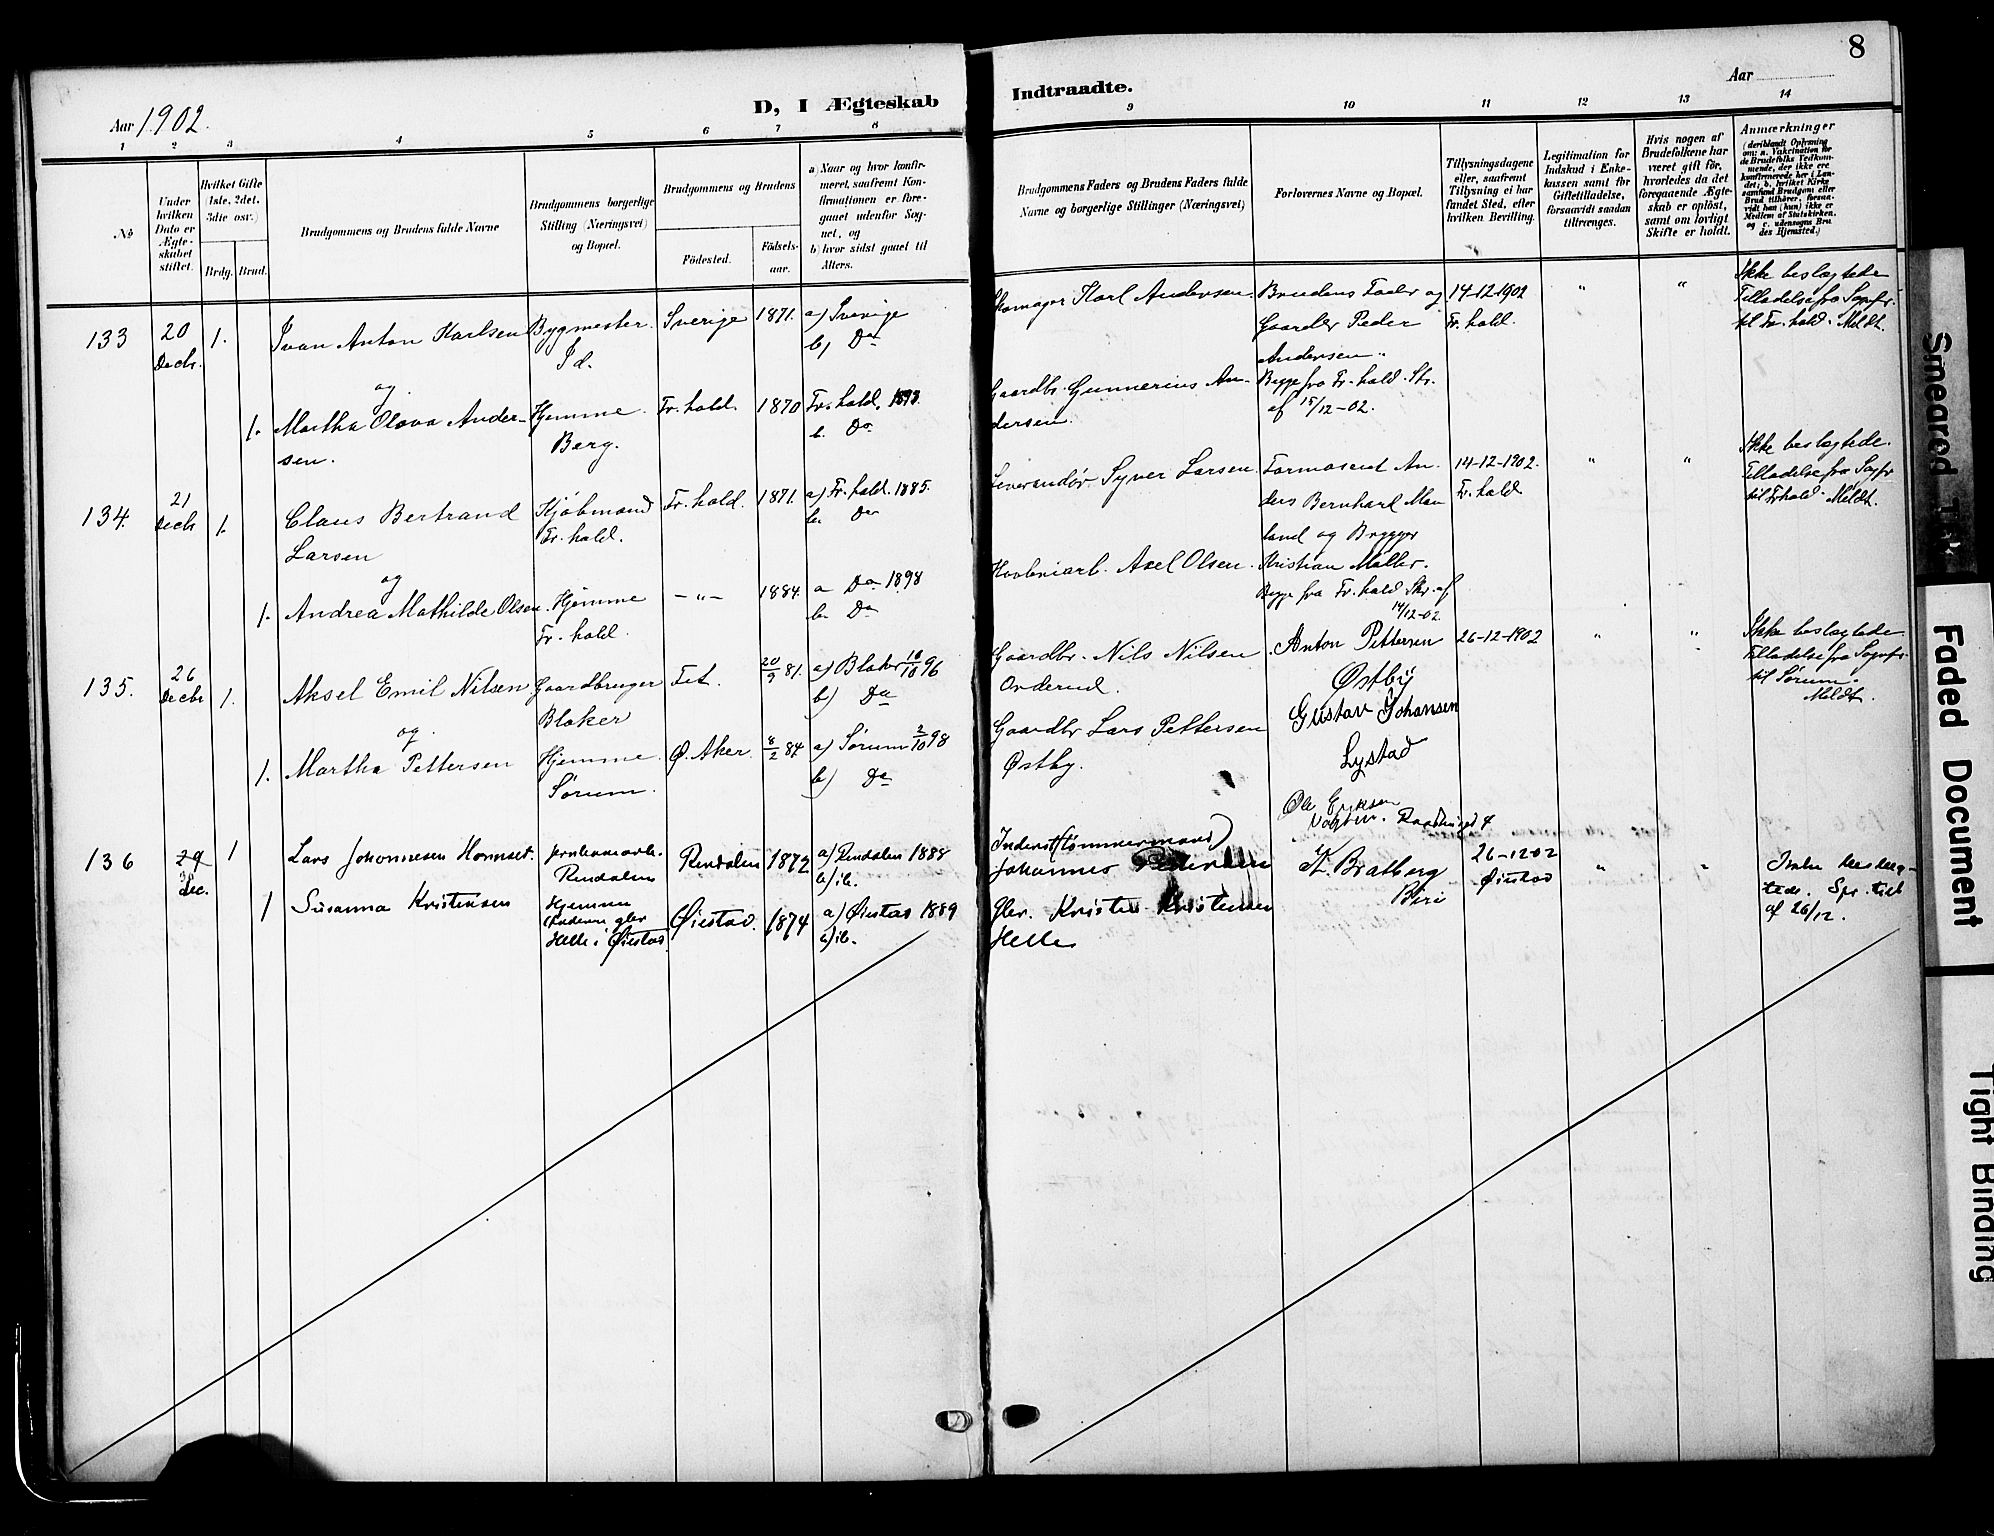 8
Aar 1902.
D, I Ægteskab
Indtraadte.
Aar
1 2 3 4 5 6 7 8
9 10 11 12 13 14
No
Under
hvilken
Dato er
Ægte-
skabet
stiftet.
Hvilket Gifte
(1ste, 2det,
3die osv.)
Brdg. Brud.
Brudgommens og Brudens fulde Navne
Brudgommens borgerlige
Stilling (Næringsvei)
og Bopæl.
Brudgommens og Brudens
Födested.
Födsels-
aar.
a) Naar og hvor konfir-
meret, saafremt Kon-
firmationen er fore-
gaaet udenfor Sog-
net, og
b) hvor sidst gaaet til
Alters.
Brudgommens Faders og Brudens Faders fulde
Navne og borgerlige Stillinger (Næringsvei)
Forlovernes Navne og Bopæl.
Tillysningsdagene
eller, saafremt
Tillysning ei har
fundet Sted, efter
hvilken Bevilling.
Legitimation for
Indskud i Enke-
kassen samt for
Giftetilladelse,
forsaavidt saadan
tiltrænges.
Hvis nogen af
Brudefolkene har
været gift för,
hvorledes da det
foregaaende Ægte-
skab er oplöst,
samt om lovligt
Skifte er holdt.
Anmærkninger
(deriblandt Oplysning
om: a. Vakcination for
de Brudefolks Vedkom-
mende, der ikke ere
konfirmerede her i Lan-
det; b. hvilket Kirke-
samfund Brudgom eller
Brud tilhører, forsaa-
vidt han (hun) ikke er
Medlem af Statskirken,
og c. udensogns Bru-
des Hjemsted.)
133
20
Decbr.
1.
Ivan Anton Karlsen
Bygmester.
Id.
Sverige
1871.
a) Sverige
b) Do
Skomager Karl Andersen.
Brudens Fader og
Gaardbr Peder
Andersen.
Begge fra Fr.hald. Skr.
af 15/12-02.
14-12-1902
Fr. hald.
"
"
Ikke beslægtede
Tilladelse fra Sognpr.
til Fr.hald. Meldt.
og
1.
Martha Olava Ander-
sen.
Hjemme
Berg.
Fr. hald.
1870
Fr. hald.
b. Do
Gaardbr. Gunnerius An-
dersen.
134.
21
Decbr
1.
Claus Bertrand
Larsen
Kjøbmand
Fr. hald.
Fr. hald.
1871.
a) Fr. hald. 1885.
b. Do
Leverandør Syver Larsen.
Formasend An-
ders Bernhard Mau
land og Brygger
Kristian Møller.
Begge fra Fr. hald Skr. af
14/12-02
14-12-1902.
Fr. hald
"
"
Ikke beslægtede.
Tilladelse fra Sognpr
til Fr.hald. Meldt.
og
1.
Andrea Mathilde Olsen.
Hjemme
Fr. hald.
- " -
1884.
a Do 1898
b. Do
Axel Olsen
135.
26
Decbr
1.
Aksel Emil Nilsen
Gaardbruger
Blaker
Fet.
20/9 81.
a) Blaker 18/10 96
b) Do
Gaardbr. Nils Nilsen
Orderud.
Anton Pettersen
Østby
Gustav Johansen
Lystad
26-12-1902
"
"
Ikke beslægtede
Tilladelse fra Sognpr.
til Sørum.
Meldt.
og
1.
Martha Pettersen
Hjemme
Sørum.
Ø. Aker.
8/2 84
a) Sørum 2/10 98
b) Do
Gaardbr Lars Pettersen
Østby.
136
29
Dec.
1
Lars Johannesen Hornset.
Rendalen
Rendalen
1872
a) Rendalen 1888
b) ib.
Inderst (tømmermand)
Johannes Pedersen
Ole Eriksen
K. Bratberg
Biri
26-1202
Øiestad
"
"
af 26/12.
1
Susanna Kristensen
Hjemme
Helle i Øiestad
Øiestad.
1874
a) Øiestad 1889
b) ib.
Gbr. Kristen Kristensen
Helle
Smeared Text
Faded Document
Tight Binding